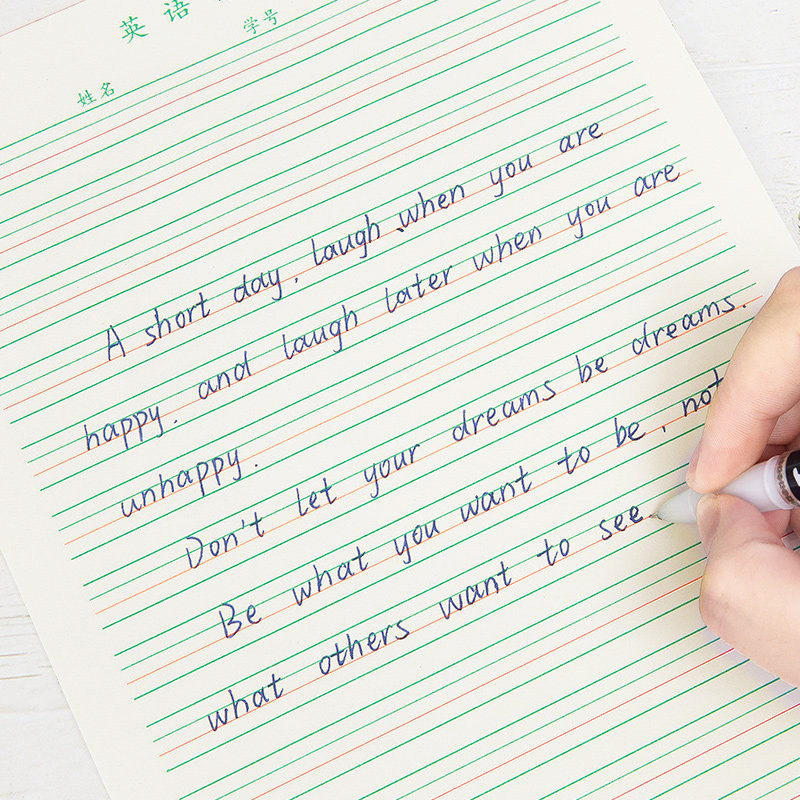 英语
学号
姓名
A short day, laugh when you are
happy. and laugh later when you are
unhappy.
Don't let your dreams be dreams.
Be what you want to be, not
what others want to see